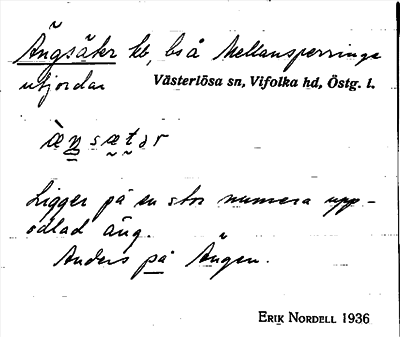 Ängsäkr kb, bs å Mellansperringe
utjordar Västerlösa sn, Vifolka hd, Östg. l.
Ligger på en stor numera upp-
odlad äng.
Anders på Ängen.
ERIK NORDELL 1936